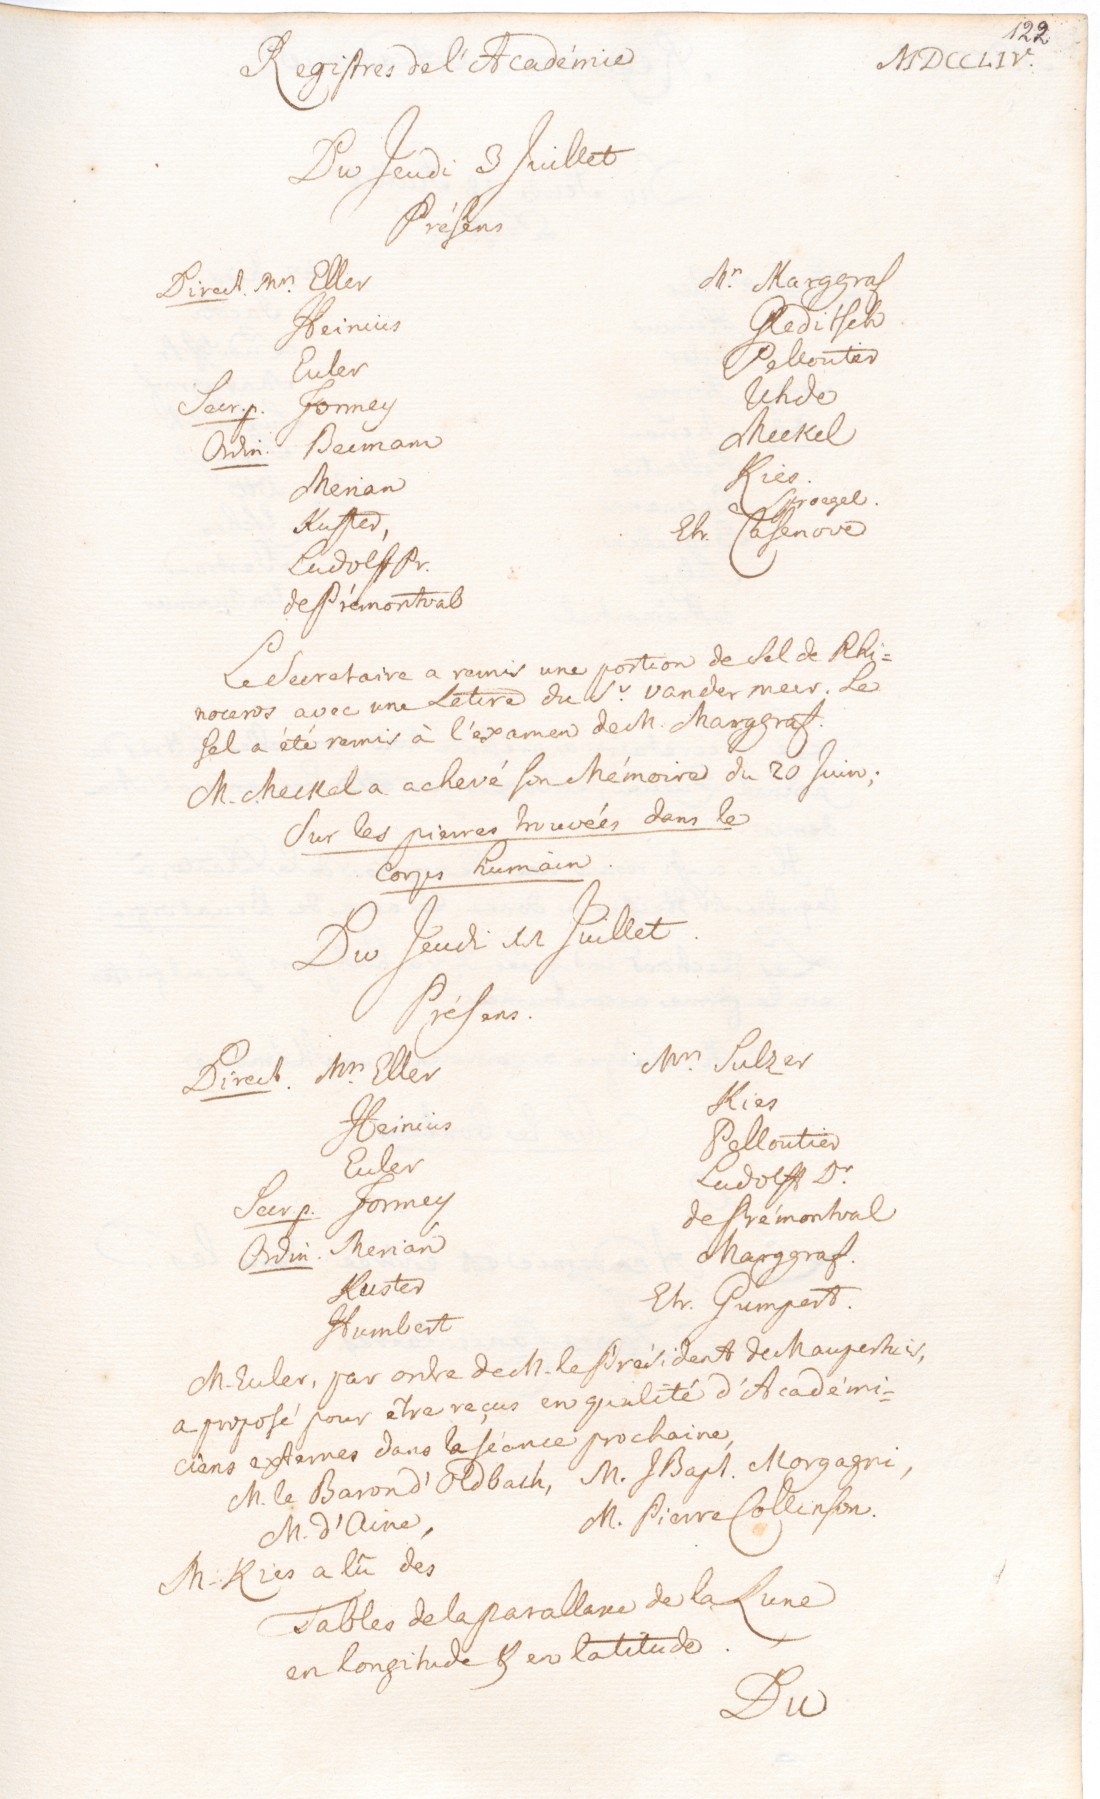 122
Registres de l'Académie
MDCCLIV.
Du Jeudi 3 Juillet
Présens
Direct. Mrs. Eller
Heinius
Euler
Secr. p. Formey
Ordin. Becmann
Merian
Kuster,
Ludolff Pr.
de Prémontval
Mrs Marggraf
Gleditsch
Pelloutier
Uhde
Meckel
Kies.
Sproegel.
Etr. Casenove
Le Secretaire a remis une portion de Sel de Rhi=
noceros avec une Lettre du Sr. vander meer. Le
Sel a été remis à l'examen de M. Marggraf.
M. Meckel a achevé son Mémoire du 20 Juin;
Sur les pierres trouvées dans le
Corps humain.
Du Jeudi 11 Juillet.
Présens.
Direct. Mrs. Eller
Heinius
Euler
Secr p. Formey
Ordin. Merian
Kuster
Humbert
Mrs Sulzer
Kies
Pelloutier
Ludolff Dr.
de Prémontval
Marggraf.
Etr. Gumpert.
M. Euler, par ordre de M. le Président de Maupertuis,
a proposé pour être reçus en qualité d'Académi=
ciens externes dans la séance prochaine,
M. le Baron d'Oldbach, M. J Bapt. Morgagni,
M. d'Aine, M. Pierre Collinson.
M. Kies a lû des
Tables de la parallaxe de la Lune
en longitude & en latitude.
Du